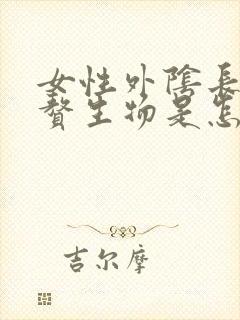 女性外陰長
贅生物是怎
吉尔摩